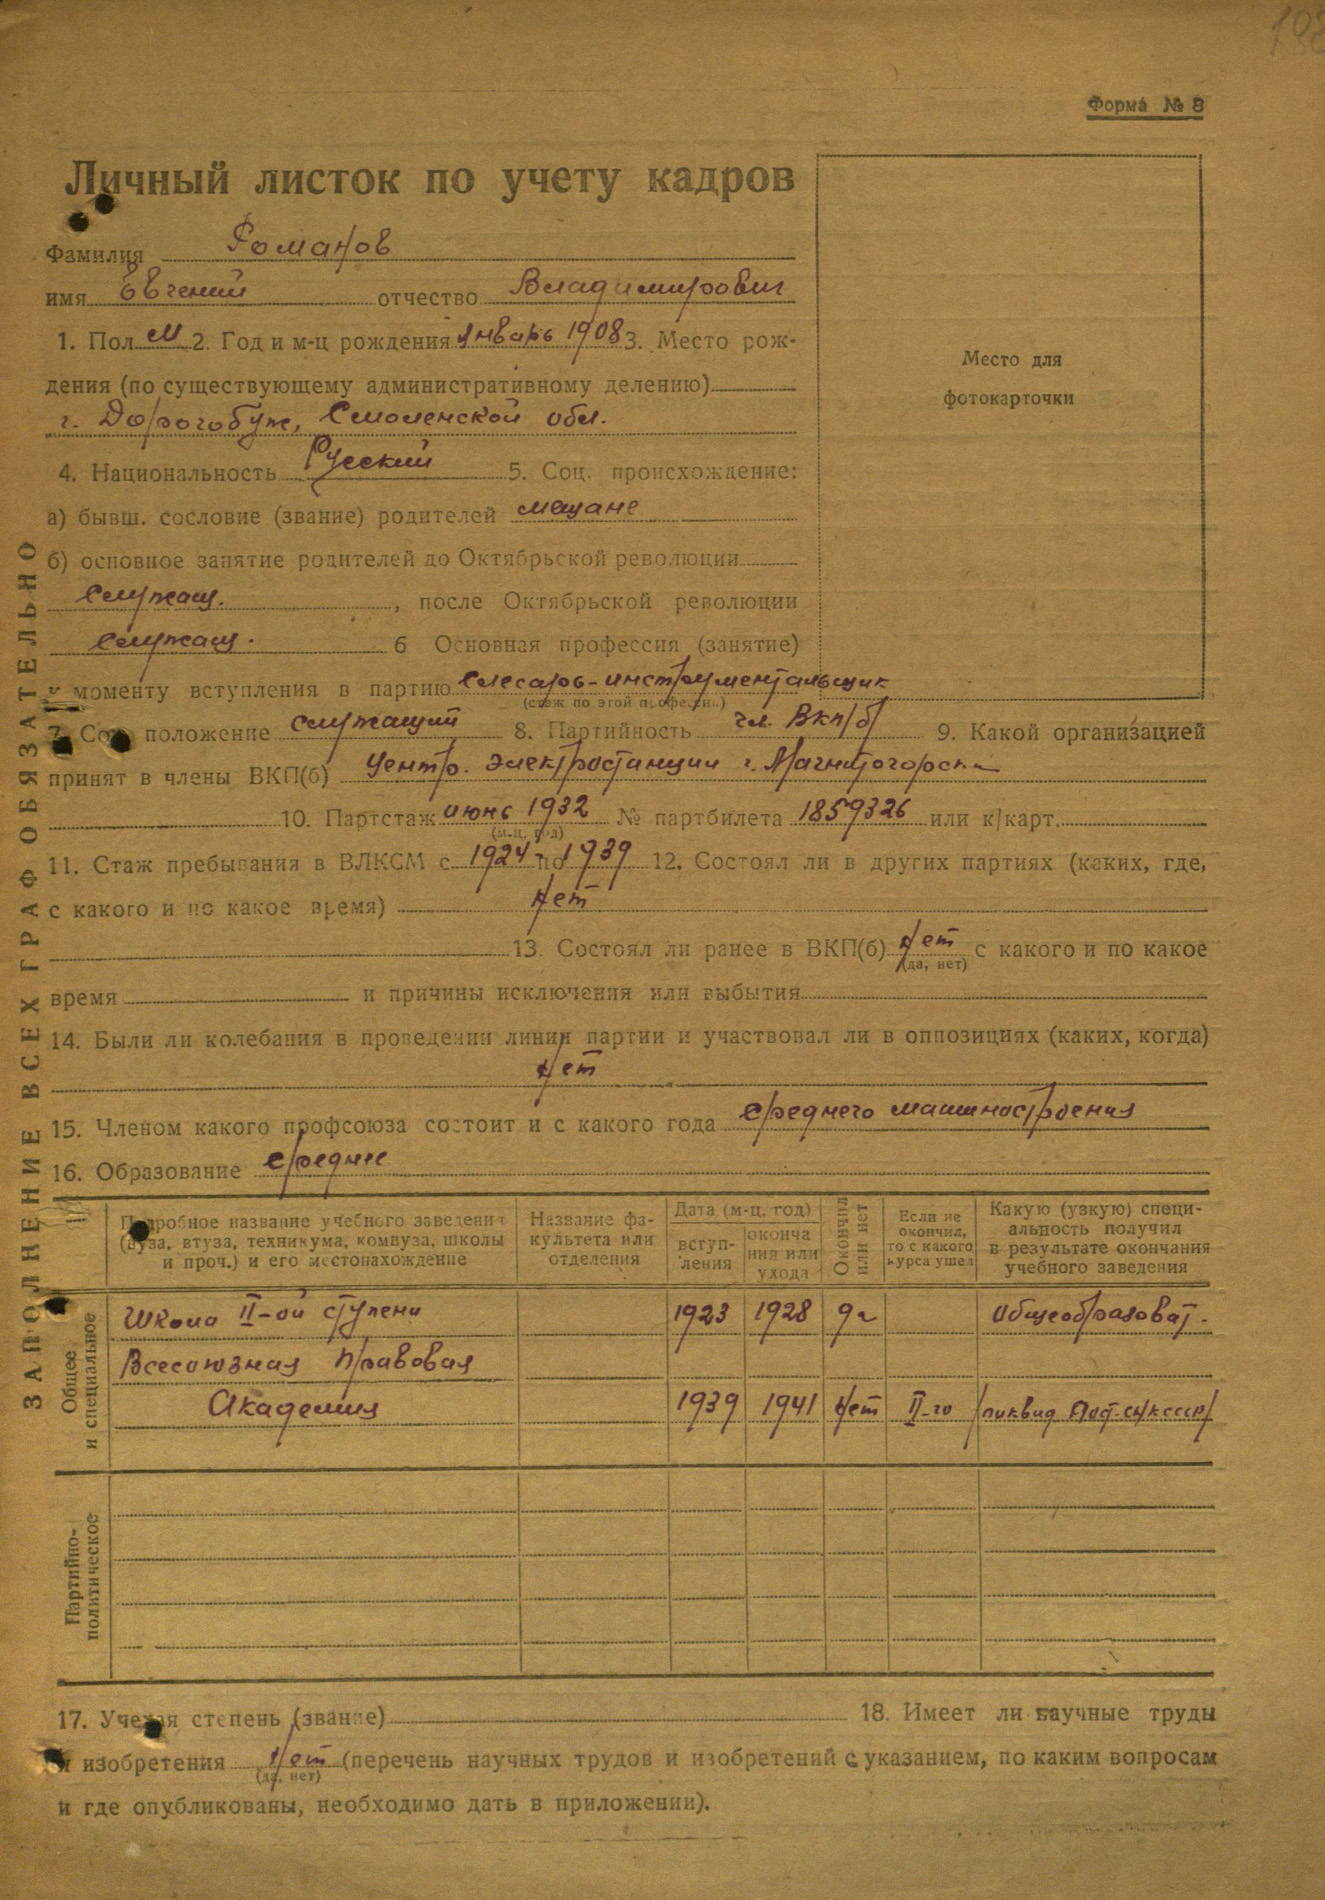 Форма № 8
Личный листок по учету кадров
Фамилия Романов
имя Евгений отчество Владимирович
1. Пол М 2. Год и м-ц рождения январь 1908 3. Место рож-
дения (по существующему административному делению)
г. Дорогобуж, Смоленской обл.
Место для
фотокарточки
4. Национальность Русский 5. Соц. происхождение:
а) бывш. сословие (звание) родителей мещане
б) основное занятие родителей до Октябрьской революции
служащ. , после Октябрьской революции
служащ. 6 Основная профессия (занятие)
к моменту вступления в партию слесарь-инструментальщик
(стаж по этой професси.)
7. Соц. положение служащий 8. Партийность чл. ВКП/б/ 9. Какой организацией
принят в члены ВКП(б) Центр. Электростанции г. Магнитогорска
10. Партстаж июнь 1932 № партбилета 1859326 или к/карт.
(м-ц, год)
11. Стаж пребывания в ВЛКСМ с 1924 по 1939 12. Состоял ли в других партиях (каких, где,
с какого и по какое время) Нет
13. Состоял ли ранее в ВКП(б) Нет с какого и по какое
(да, нет)
время и причины исключения или выбытия
14. Были ли колебания в проведении линии партии и участвовал ли в оппозициях (каких, когда)
Нет
15. Членом какого профсоюза состоит и с какого года среднего машиностроения
16. Образование среднее
Подробное название учебного заведения
(вуза, втуза, техникума, комвуза, школы
и проч.) и его местонахождение
Название фа-
культета или
отделения
Дата (м-ц, год)
вступ-
ления
оконча
ния или
ухода
Окончил
или нет
Если не
окончил,
то с какого
курса ушел
Какую (узкую) специ-
альность получил
в результате окончания
учебного заведения
Общее
и специальное
Школа II-ой ступени 1923 1928 Да Общеобразоват.
Всесоюзная Правовая
Академия 1939 1941 Нет II-го /ликвид Пост-СНКСССР/
Партийно-
политическое
17. Ученая степень (звание) 18. Имеет ли научные труды
и изобретения Нет (перечень научных трудов и изобретений с указанием, по каким вопросам
(да, нет)
и где опубликованы, необходимо дать в приложении).
ЗАПОЛНЕНИЕ ВСЕХ ГРАФ ОБЯЗАТЕЛЬНО